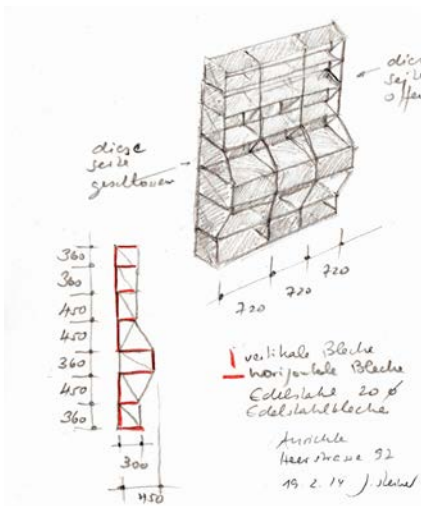 diese
seite
offen
diese
seite
geschlossen
720
720
720
360
360
450
450
360
450
360
300
450
vertikale Bleche
horizontale Bleche
Edelstahl 20 ø
Edelstahlbleche
Anrichte
Heerstrasse 92
19 2. 14 J.